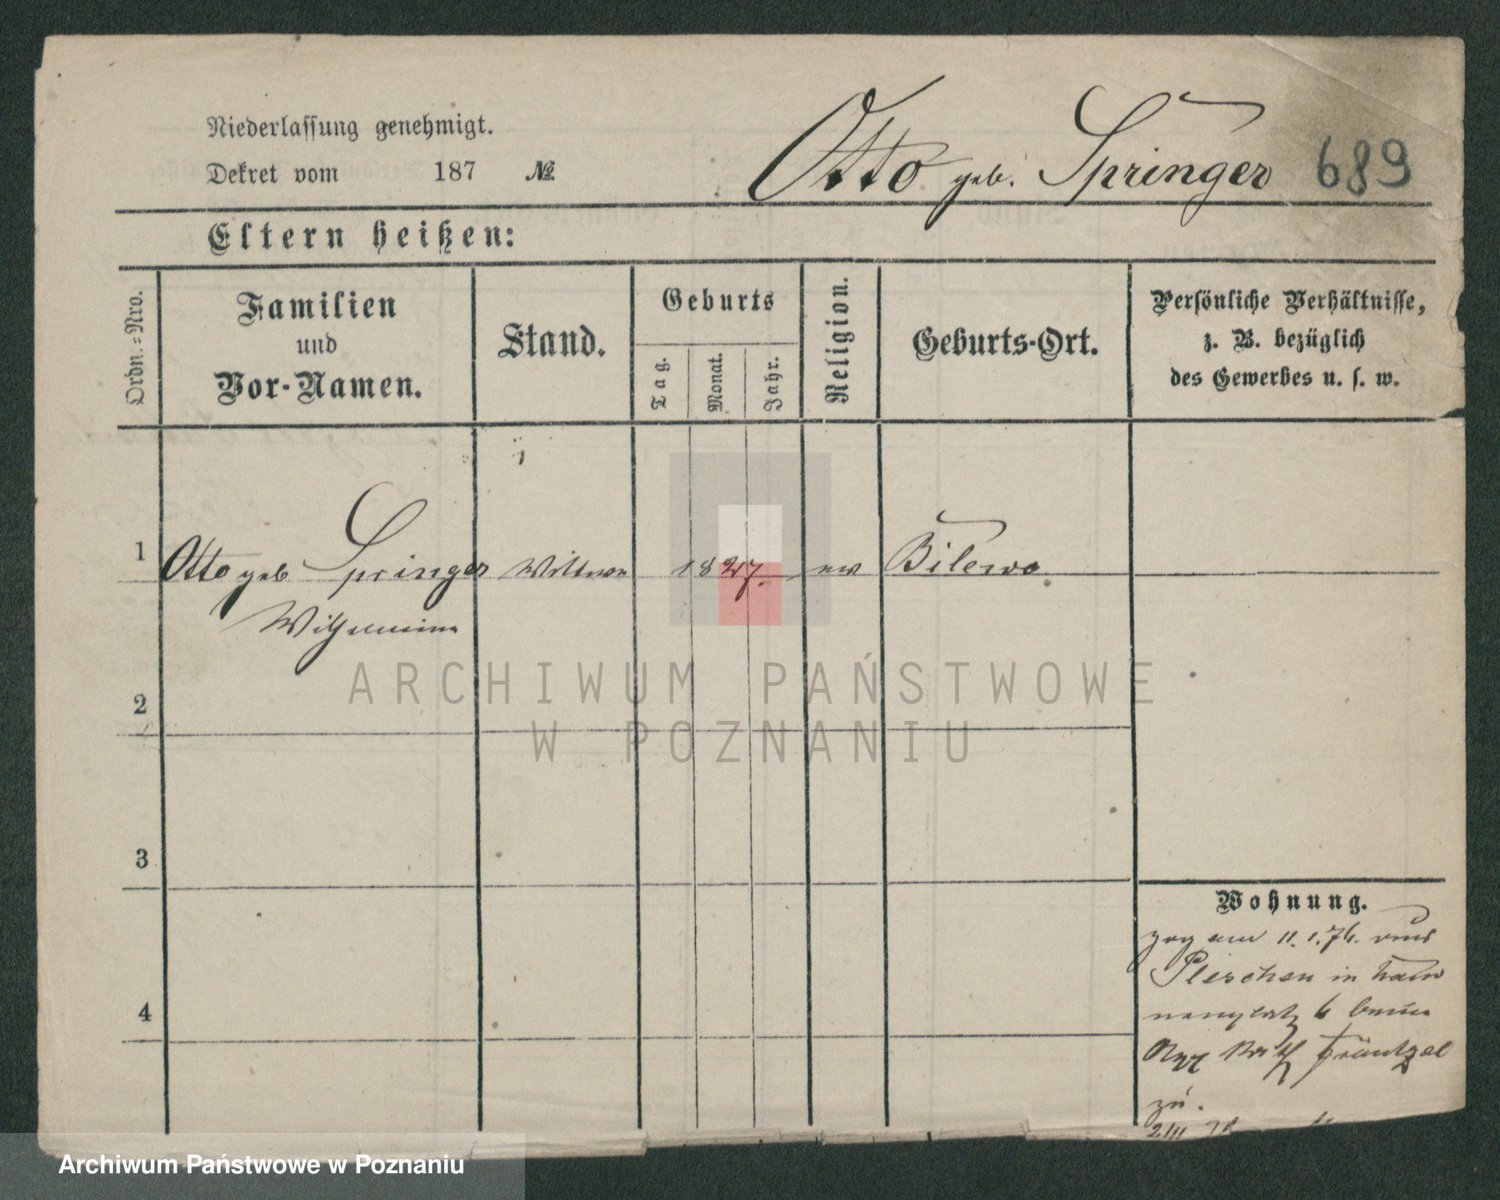 Niederlassung genehmigt.
Dekret vom 187 №
Otto geb. Springer 689
Eltern heißen:
Ordn.-Nro.
Familien
und
Vor-Namen.
Stand.
Geburts
Tag.
Monat.
Jahr.
Religion.
Geburts-Ort.
Persönliche Verhältnisse,
z. B. bezüglich
des Gewerbes u. s. w.
1 Otto geb Springer Wittwe 1827. ev Bilewo
Wilhelmine
2
3
4
Wohnung.
zog am 11.1.76. aus
Pleschen in
6 beim
Rath
zu.
ARCHIWUM PAŃSTWOWE
W POZNANIU
Archiwum Państwowe w Poznaniu